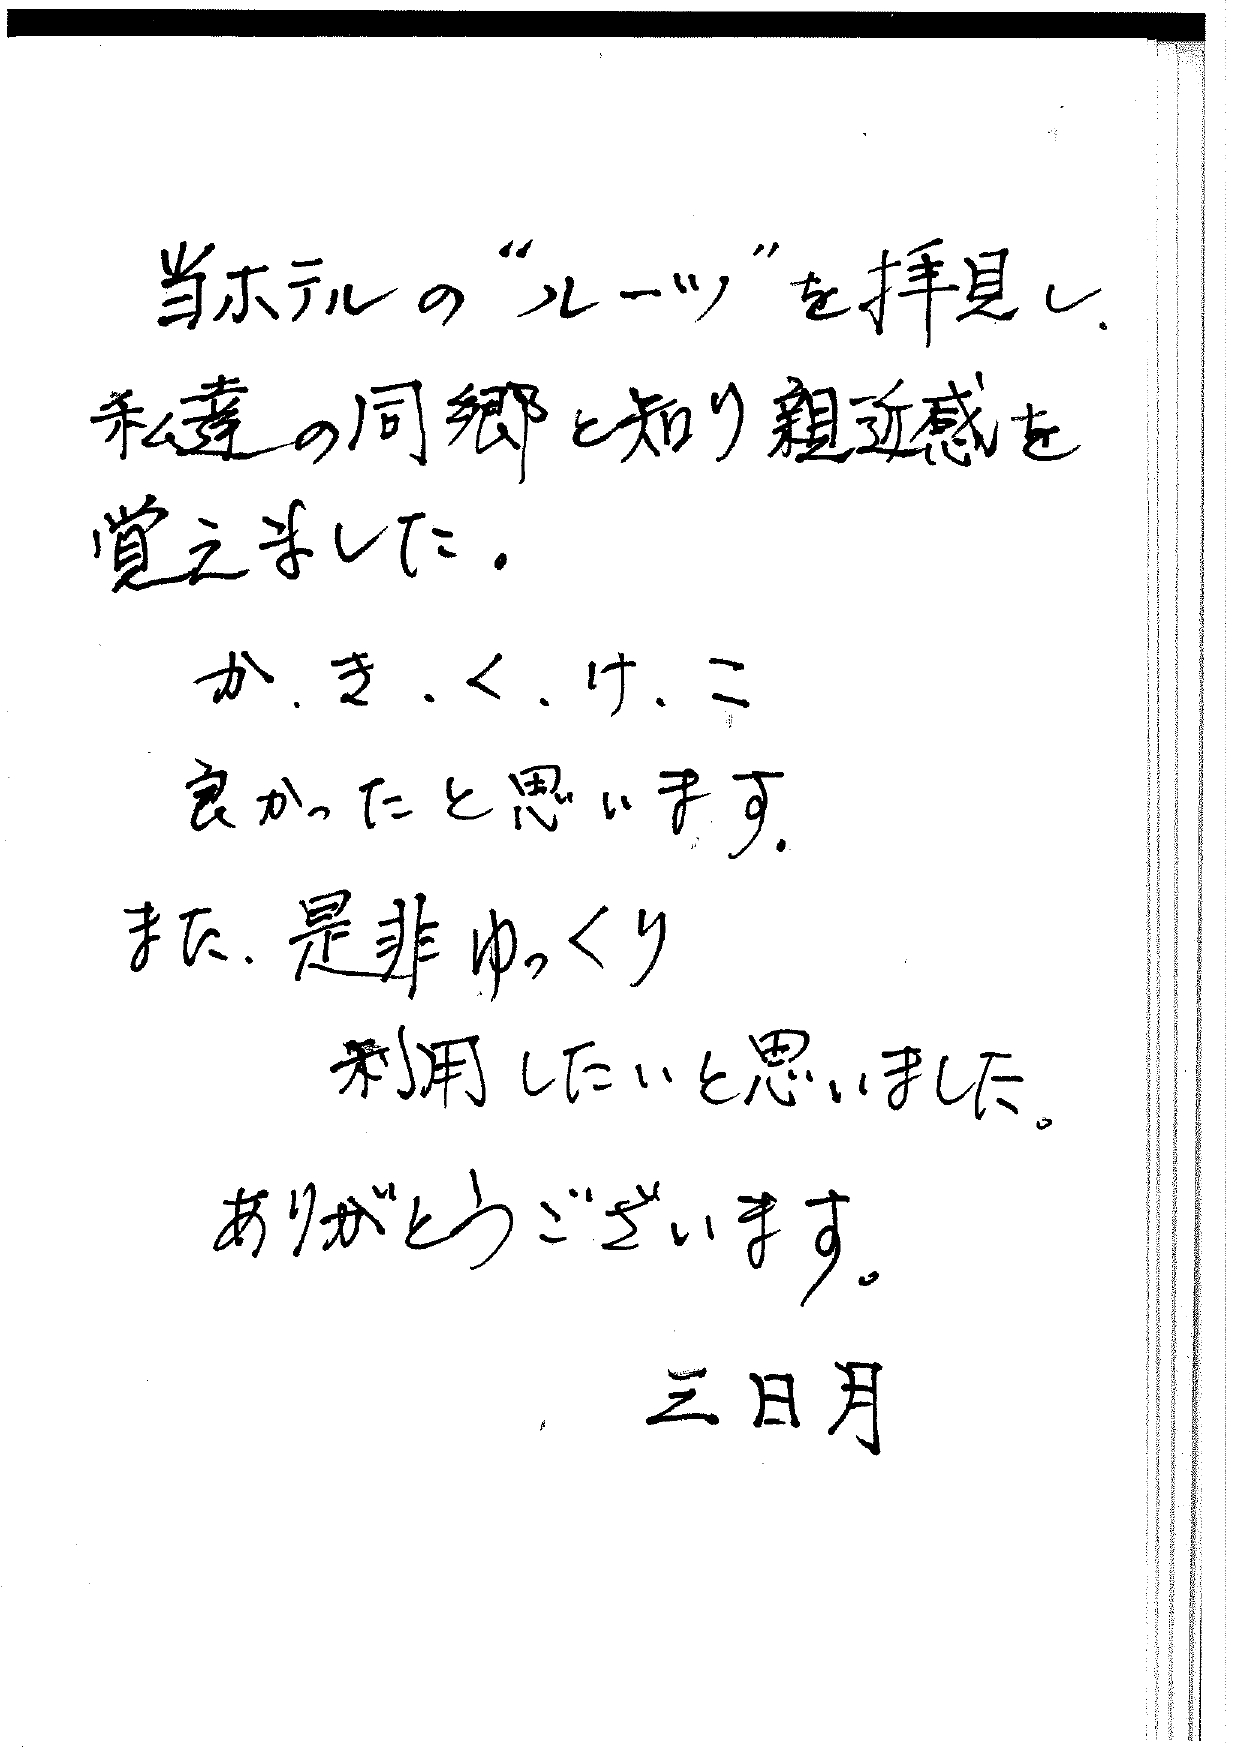 当ホテルの“ルーツ”を拝見し、
私達の同郷と知り親近感を
覚えました.
か.き.く.け.こ
良かったと思います.
また、是非ゆっくり
利用したいと思いました。
ありがとうございます。
三日月